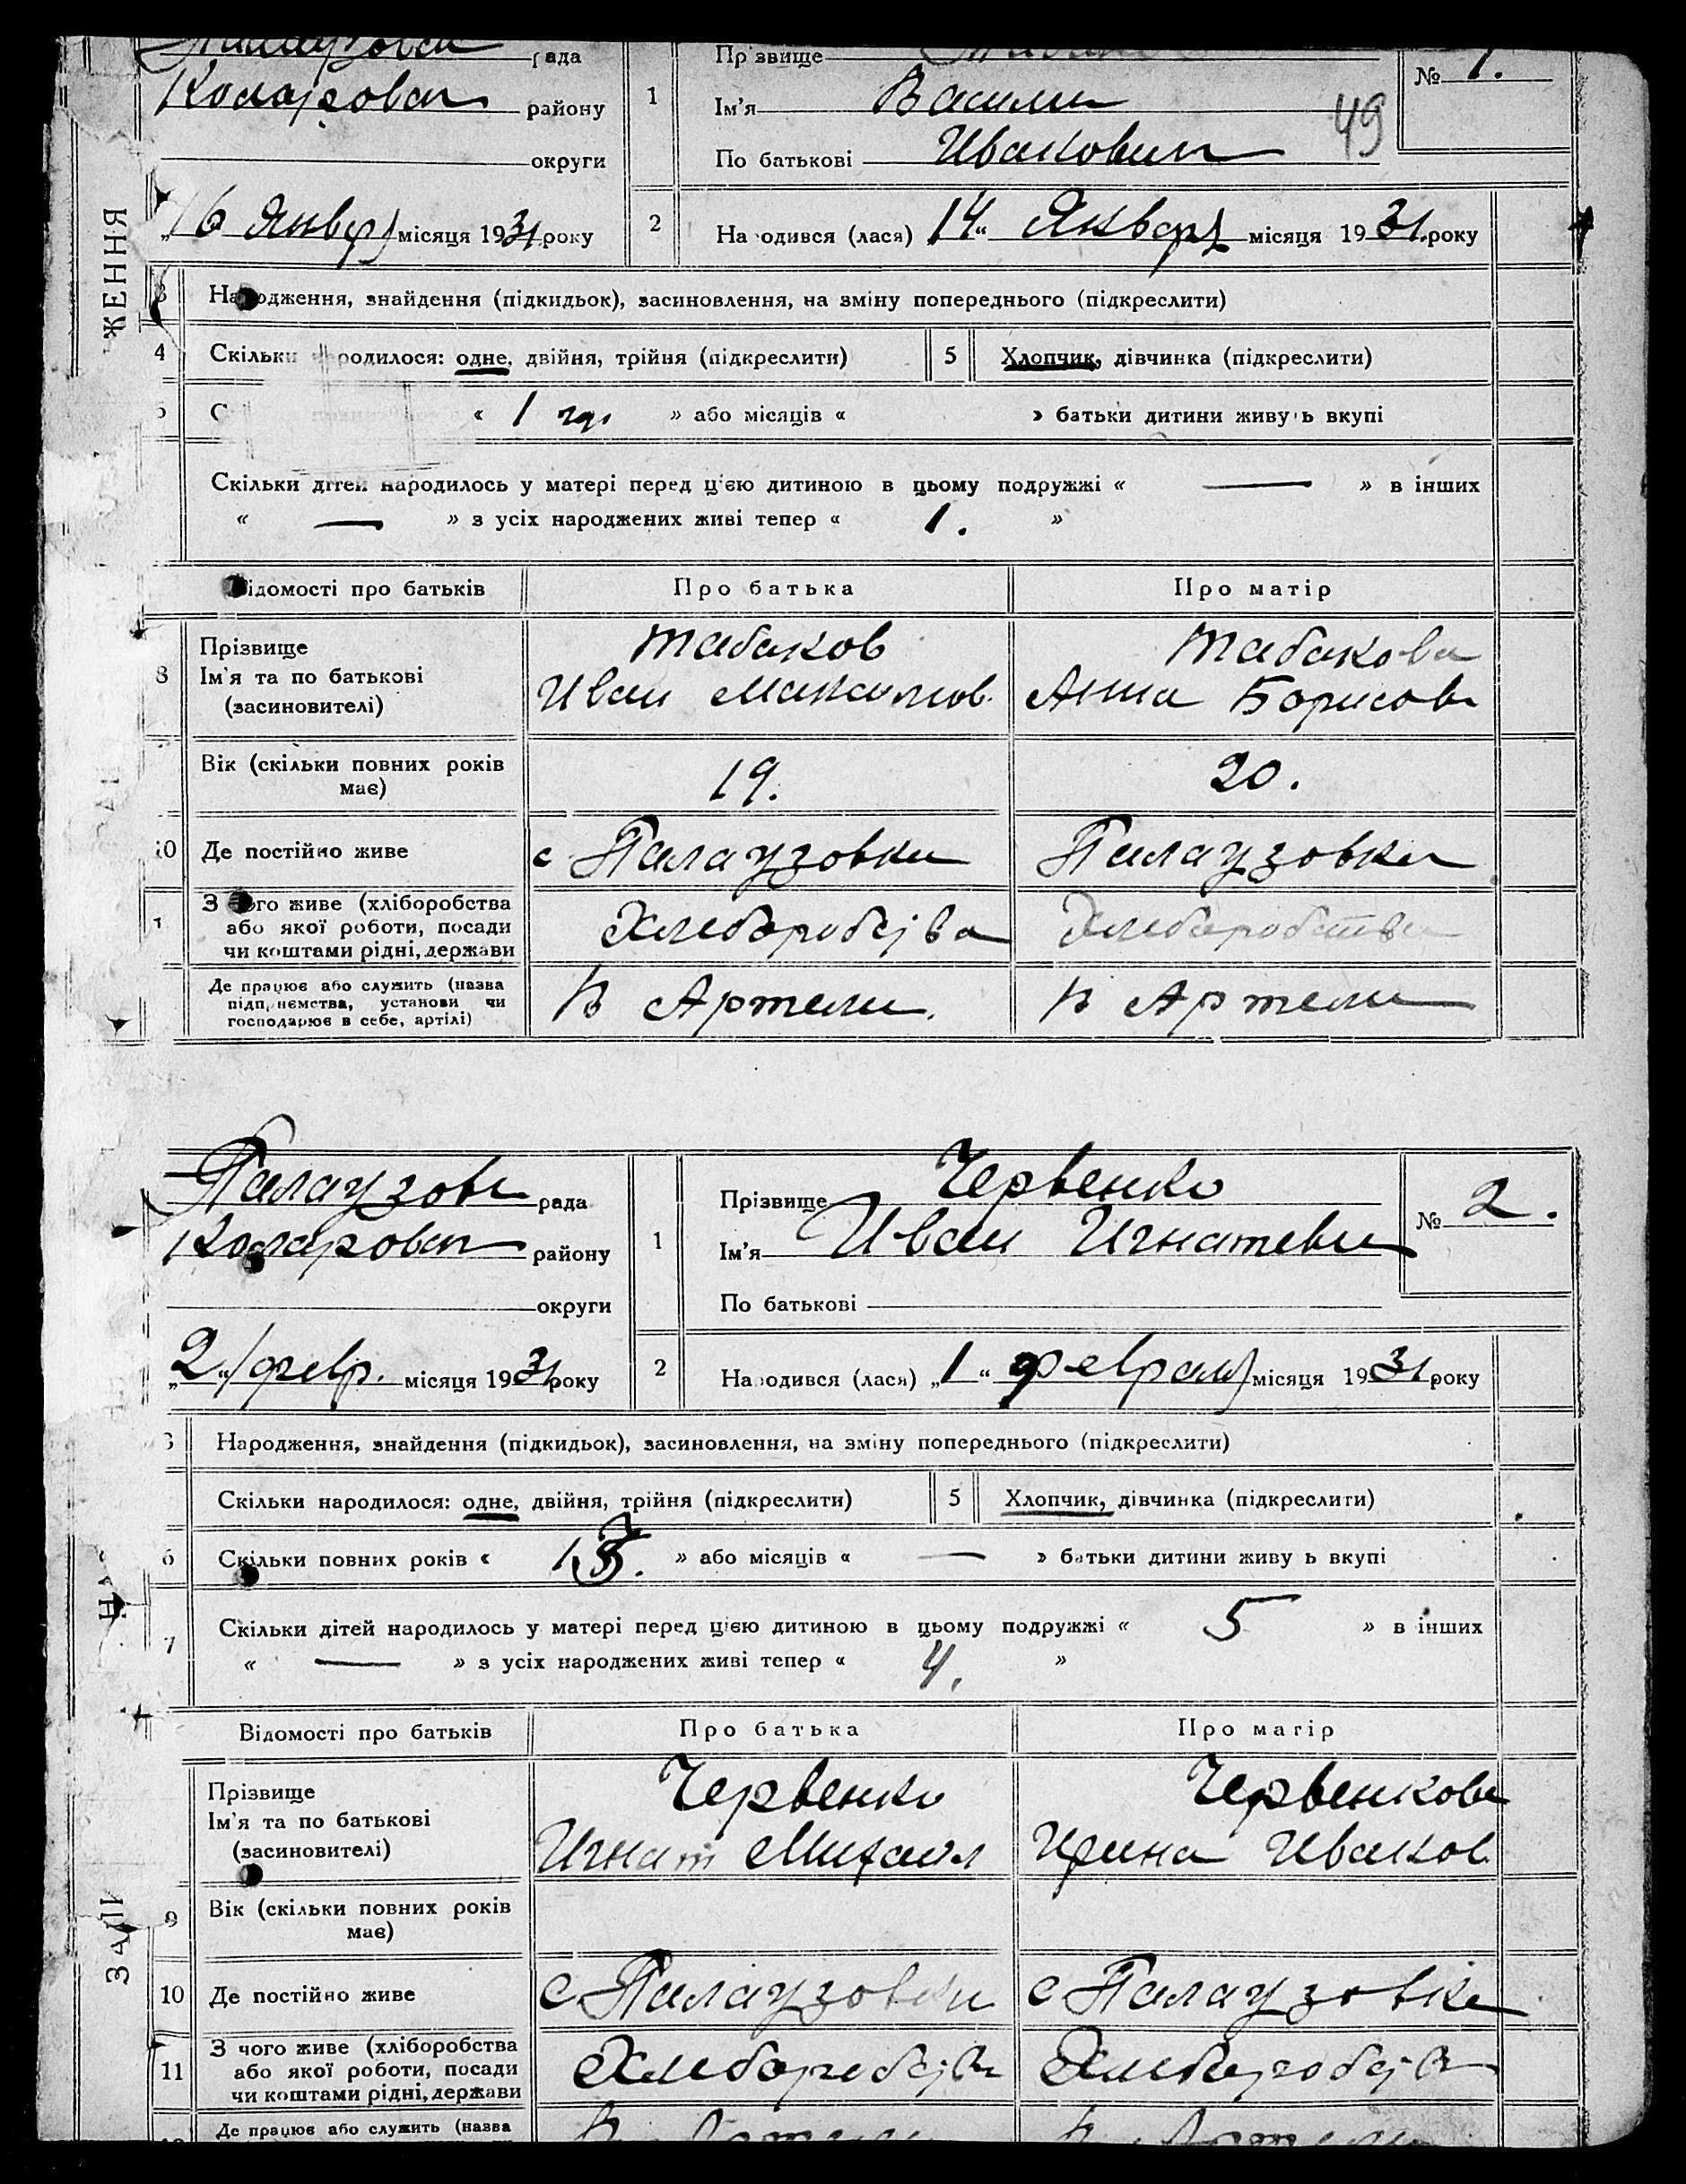 рада
Коларовск району
округи
1
Прізвище
Ім'я Василий
По батькові Иванович
№ 1.
49
„16 Января місяця 1931 року
2
Народився (лася) „14“ Января місяця 1931 року
ЖЕННЯ
3
Народження, знайдення (підкидьок), засиновлення, на зміну попереднього (підкреслити)
4
Скільки народилося: одне, двійня, трійня (підкреслити)
5
Хлопчик, дівчинка (підкреслити)
« 1 год » або місяців « » батьки дитини живуть вкупі
Скільки дітей народилось у матері перед цією дитиною в цьому подружжі « — » в інших
« — » з усіх народжених живі тепер « 1. »
Відомості про батьків
Про батька
Про матір
8
Прізвище
Ім'я та по батькові
(засиновителі)
Табаков
Иван Максимов.
Табакова
Анна Борисов
Вік (скільки повних років
має)
19.
20.
10
Де постійно живе
с Палаузовка
Палаузовка
З чого живе (хліборобства
або якої роботи, посади
чи коштами рідні, держави
Хлеборобства
Хлеборобства
Де працює або служить (назва
підприємства, установи чи
господарює в себе, артілі)
В Артели.
В Артели
Палаузовс рада
Коларовск району
округи
1
Прізвище Червенко
Ім'я Иван Игнатеви
По батькові
№ 2.
„2“ февр. місяця 1931 року
2
Народився (лася) „1“ февраля місяця 1931 року
3
Народження, знайдення (підкидьок), засиновлення, на зміну попереднього (підкреслити)
Скільки народилося: одне, двійня, трійня (підкреслити)
5
Хлопчик, дівчинка (підкреслити)
6
Скільки повних років « 13. » або місяців « — » батьки дитини живуть вкупі
7
Скільки дітей народилось у матері перед цією дитиною в цьому подружжі « 5 » в інших
« — » з усіх народжених живі тепер « 4. »
Відомості про батьків
Про батька
Про матір
Прізвище
Ім'я та по батькові
(засиновителі)
Червенко
Игнат Михаил
Червенкова
Ирина Иванов
9
Вік (скільки повних років
має)
10
Де постійно живе
с Палаузовки
с Палаузовка
11
З чого живе (хліборобства
або якої роботи, посади
чи коштами рідні, держави
Хлеборобств
Хлеборобств
Де працює або служить (назва
В Артели
В Артели